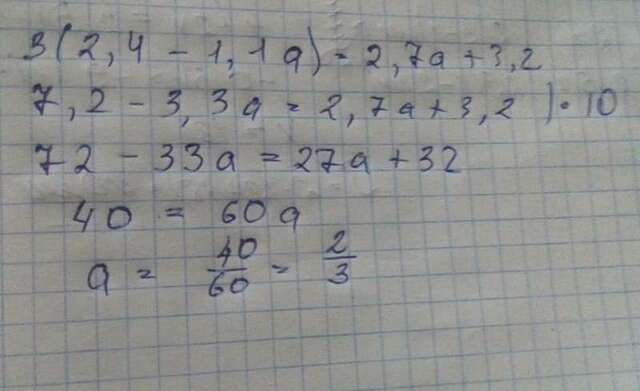 3(2,4 - 1,1a) = 2,7a + 3,2
7,2 - 3,3a = 2,7a + 3,2 ) · 10
72 - 33a = 27a + 32
40 = 60a
a = 40/60 = 2/3